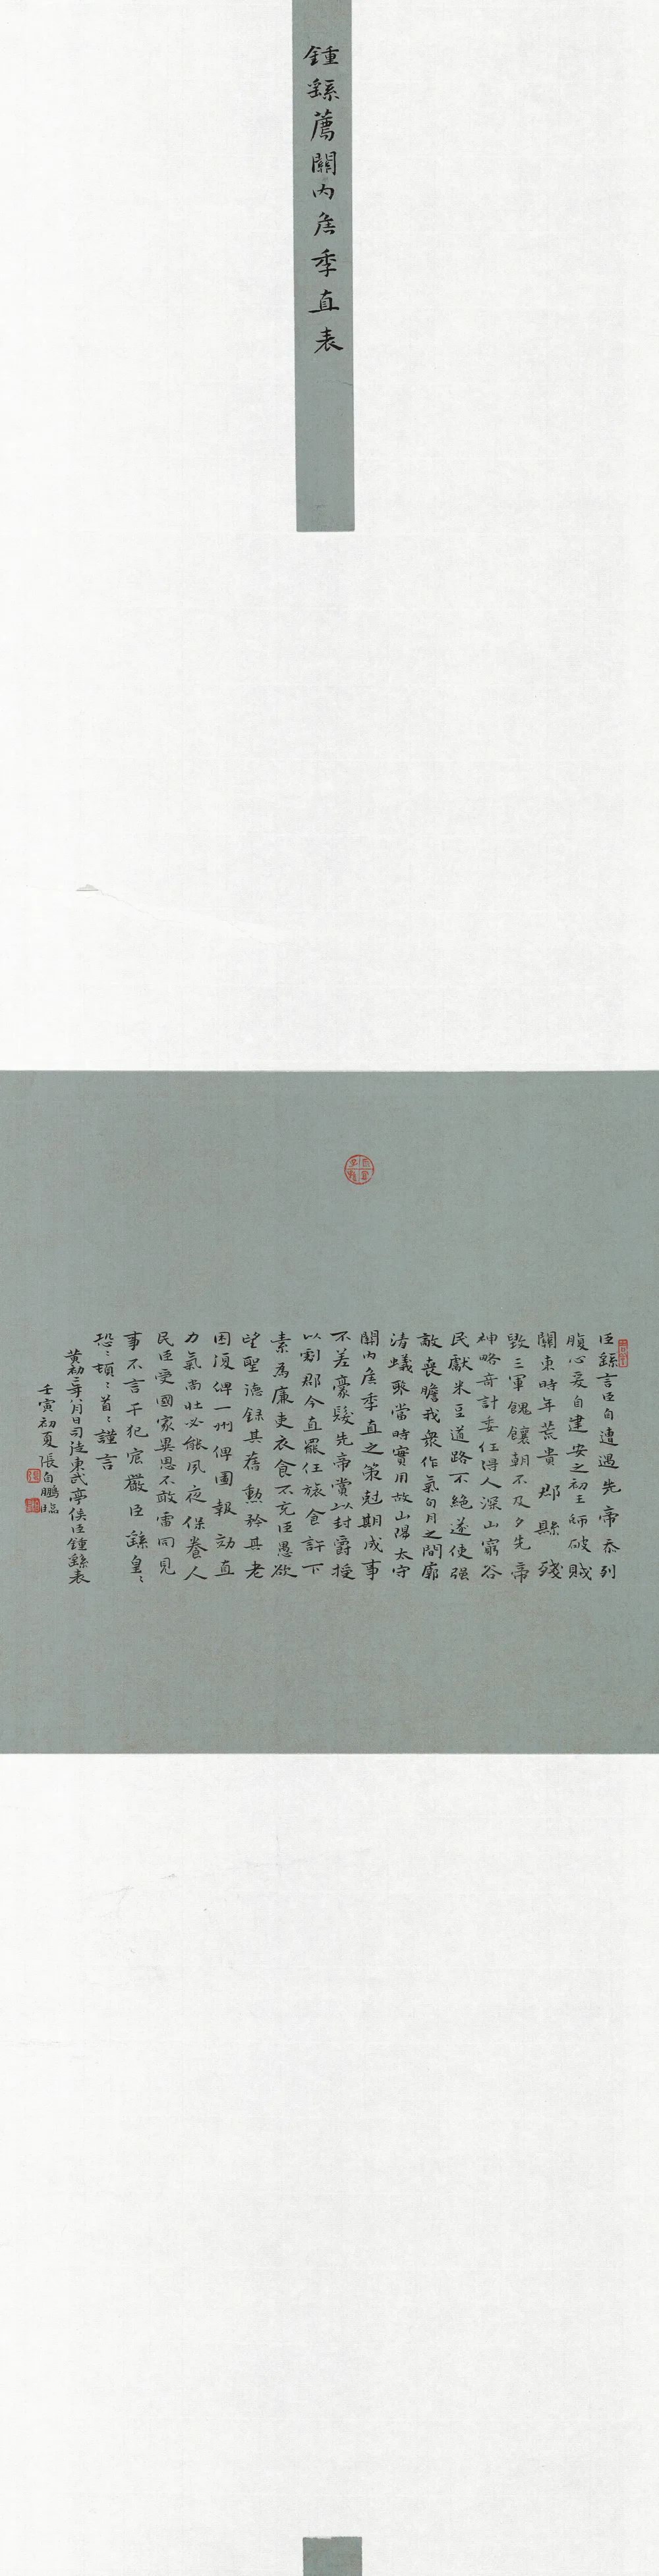 鍾繇薦關內侯季直表
臣繇言臣自遭遇先帝忝列
腹心爰自建安之初王師破賊
關東時年荒貴郡縣殘
毀三軍餽饟朝不及夕先帝
神略奇計委任得人深山窮谷
民獻米豆道路不絕遂使强
敵喪膽我衆作氣旬月之間廓
清蟻聚當時實用故山陽太守
關內侯季直之策剋期成事
不差豪髮先帝賞以封爵授
以劇郡今直罷任旅食許下
素為廉吏衣食不充臣愚欲
望聖德錄其舊勳矜其老
困復俾一州俾圖報効直
力氣尚壯必能夙夜保養人
民臣受國家異恩不敢雷同見
事不言干犯宸嚴臣繇皇〻
恐〻頓〻首〻謹言
黃初二年八月日司徒東武亭侯臣鍾繇表
壬寅初夏張白鵬臨